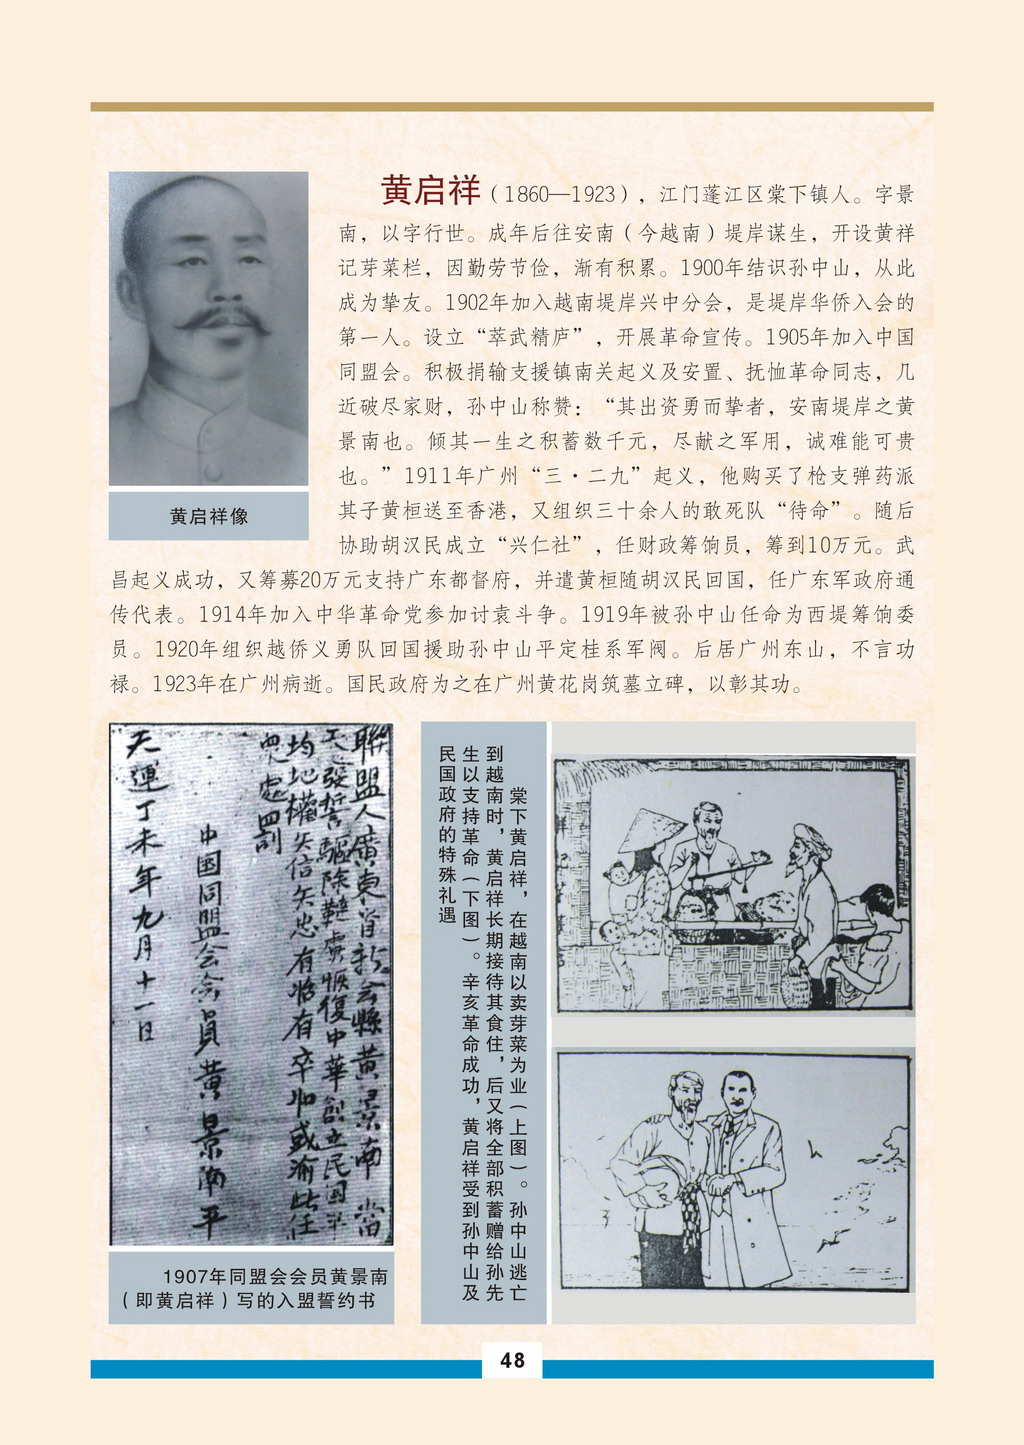 黄启祥（1860—1923），江门蓬江区棠下镇人。字景
南，以字行世。成年后往安南（今越南）堤岸谋生，开设黄祥
记芽菜栏，因勤劳节俭，渐有积累。1900年结识孙中山，从此
成为挚友。1902年加入越南堤岸兴中分会，是堤岸华侨入会的
第一人。设立“萃武精庐”，开展革命宣传。1905年加入中国
同盟会。积极捐输支援镇南关起义及安置、抚恤革命同志，几
近破尽家财，孙中山称赞：“其出资勇而挚者，安南堤岸之黄
景南也。倾其一生之积蓄数千元，尽献之军用，诚难能可贵
也。”1911年广州“三·二九”起义，他购买了枪支弹药派
其子黄桓送至香港，又组织三十余人的敢死队“待命”。随后
协助胡汉民成立“兴仁社”，任财政筹饷员，筹到10万元。武
昌起义成功，又筹募20万元支持广东都督府，并遣黄桓随胡汉民回国，任广东军政府通
传代表。1914年加入中华革命党参加讨袁斗争。1919年被孙中山任命为西堤筹饷委
员。1920年组织越侨义勇队回国援助孙中山平定桂系军阀。后居广州东山，不言功
禄。1923年在广州病逝。国民政府为之在广州黄花岗筑墓立碑，以彰其功。
黄启祥像
聯盟人廣東省新会縣黄景南當
天發誓驅除韃虜恢復中華創立民国平
均地權矢信矢忠有始有卒如或渝此任
眾處罰
中国同盟会会員黄景南平
天運丁未年九月十一日
1907年同盟会会员黄景南
（即黄启祥）写的入盟誓约书
棠下黄启祥，在越南以卖芽菜为业（上图）。孙中山逃亡
到越南时，黄启祥长期接待其食住，后又将全部积蓄赠给孙先
生以支持革命（下图）。辛亥革命成功，黄启祥受到孙中山及
民国政府的特殊礼遇
48